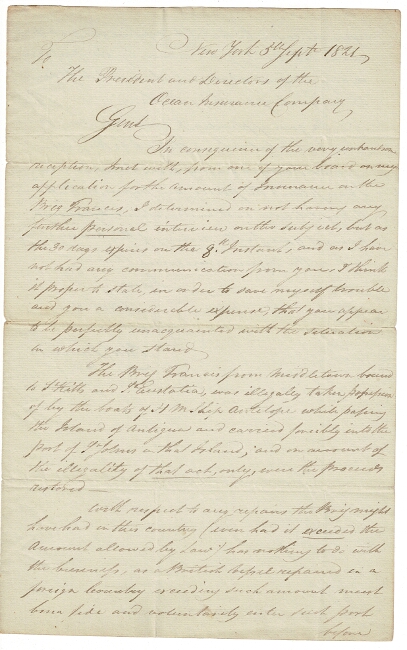 To
New York 5th Sept. 1821
The President and Directors of the
Ocean Insurance Company
Gent.
In consequence of the very unhandsome
reception, I met with, from one of your board on my
application for the amount of Insurance on the
Brig Francis, I determined on not having any
further personal interview on the subject, but as
the 30 days expires on the 8th. Instant, and as I have
not had any communication from you, I think
it proper to state, in order to save myself trouble
and you a considerable expense, that you appear
to be perfectly unacquainted with the situation
in which you stand
The Brig Francis from Middletown bound
to St. Kitts and St. Eustatia, was illegally taken possession
of by the boats of H. M. Ship Antelope while passing
the Island of Antigua and carried forcibly into the
port of St. Johns in that Island; and on account of
the illegality of that act, only, were the proceeds
restored
With respect to any repairs the Brig might
have had in this country (even had it exceeded the
Amount allowed by Law) has nothing to do with
the business, as a British Vessel repaired in a
foreign Country exceeding such amount must
bona fide and voluntarily enter such port
before